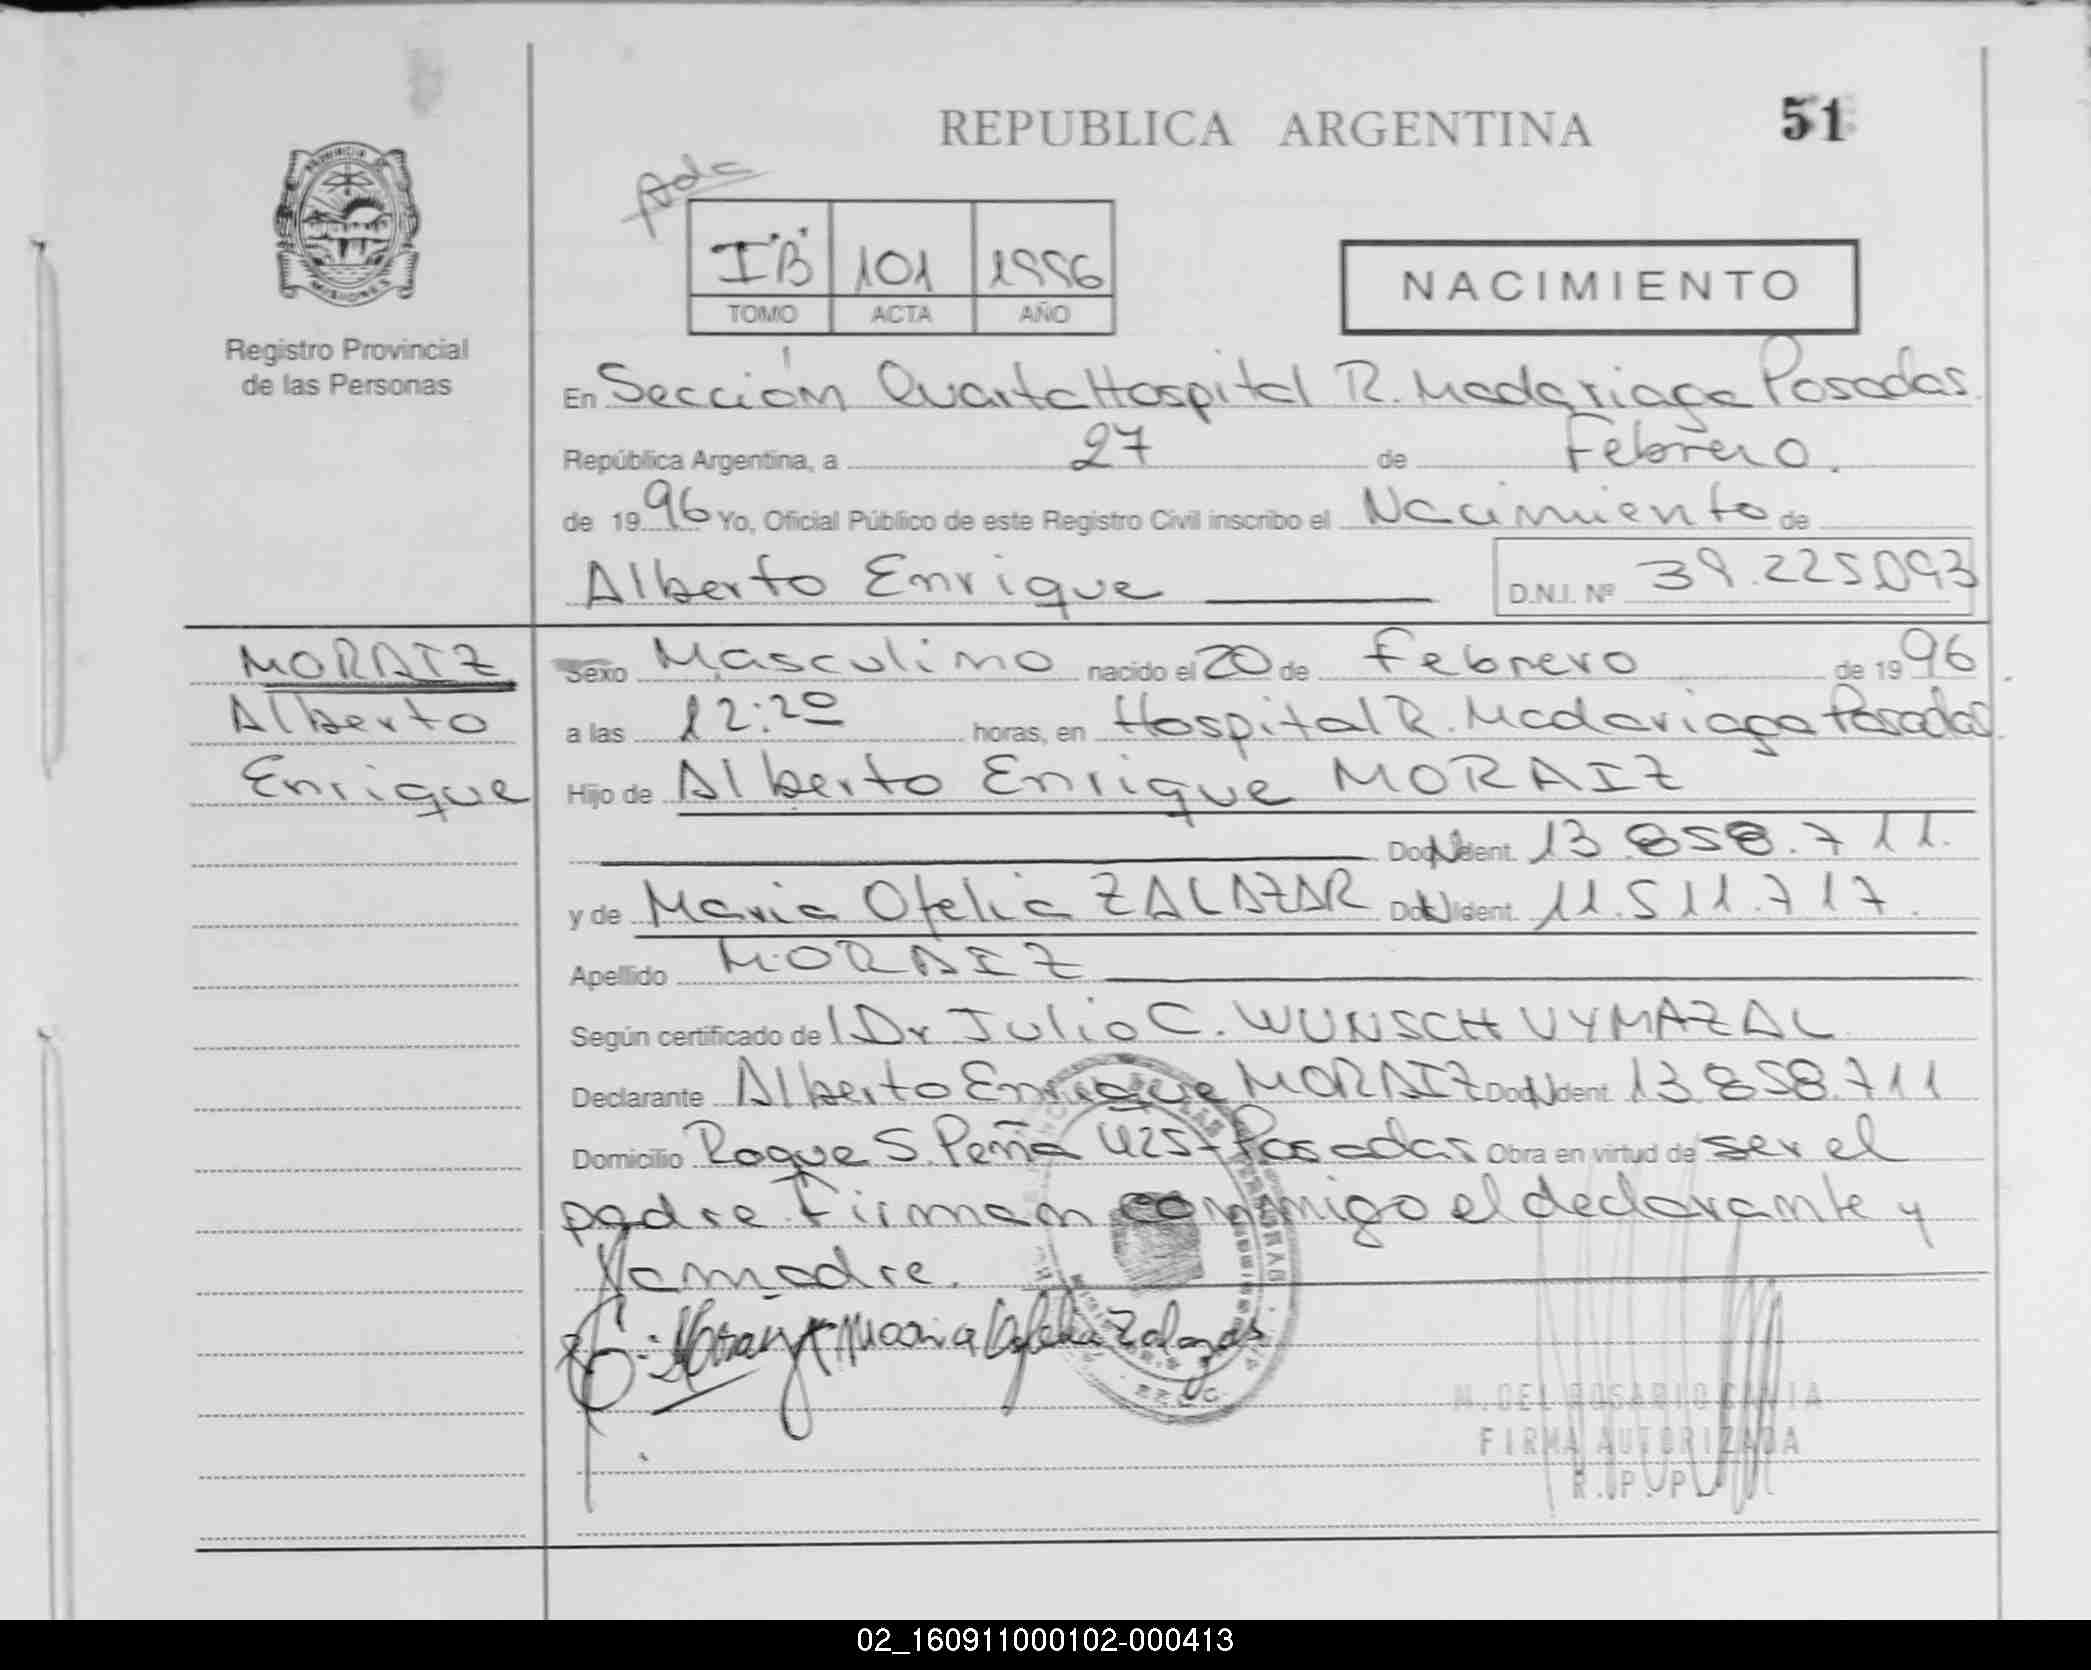 REPUBLICA ARGENTINA
51
PROVINCIA DE
MISIONES
Registro Provincial
de las Personas
I "B" 101 1996
TOMO ACTA AÑO
NACIMIENTO
En Sección Cuarta Hospital R. Madariaga Posadas.
República Argentina, a 27 de Febrero.
de 1996 Yo, Oficial Público de este Registro Civil inscribo el Nacimiento de
Alberto Enrique D.N.I. Nº 39.225.093
MORAIZ
Alberto
Enrique
Sexo Masculino nacido el 20 de Febrero de 1996
a las 12:20 horas, en Hospital R. Madariaga Posadas.
Hijo de Alberto Enrique MORAIZ
Doc. Ident. 13.858.711.
y de Maria Ofelia ZALAZAR Doc. Ident. 11.511.717.
Apellido MORAIZ
Según certificado de l Dr Julio C. WUNSCH VYMAZAL
Declarante Alberto Enrique MORAIZ Doc. Ident. 13.858.711
Domicilio Roque S. Peña 425 - Posadas Obra en virtud de ser el
padre. Firman conmigo el declarante y
la madre.
Maria Ofelia Zalazar
M. DEL ROSARIO
FIRMA AUTORIZADA
R.P.P.
02_160911000102-000413